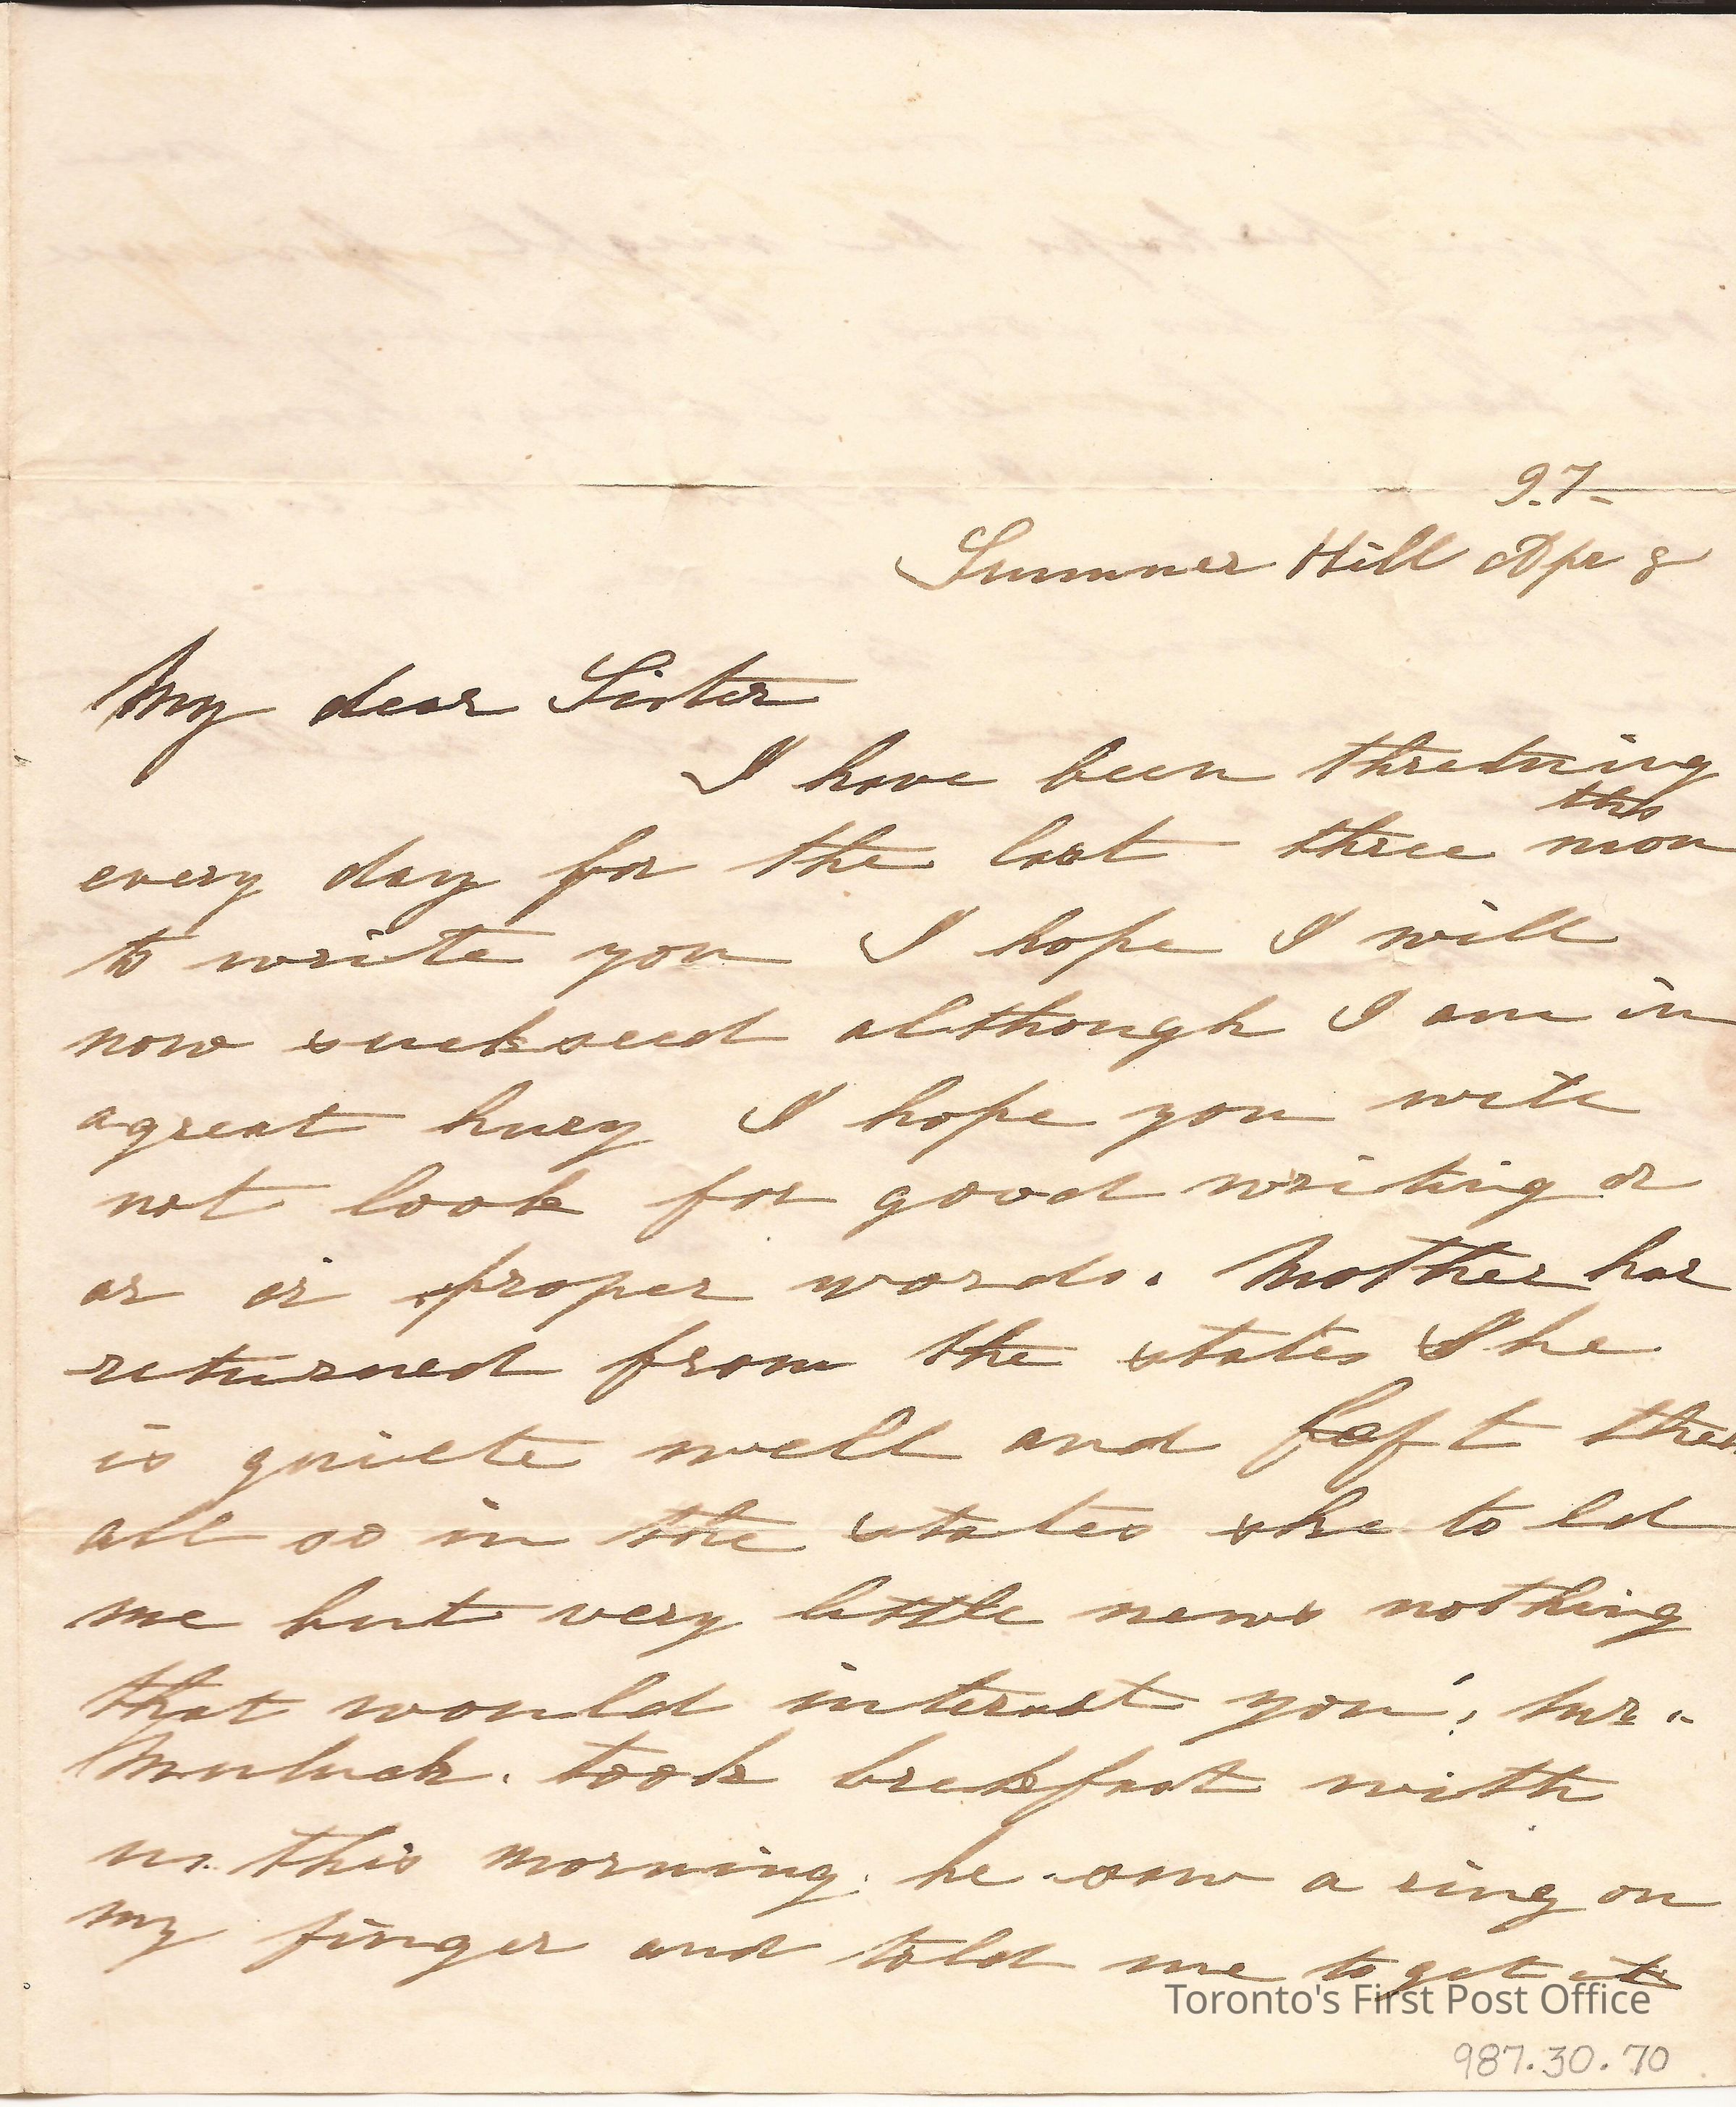 97-
Summer Hill Apr 8
My dear Sister
I have been thretning
every day for the last three months
to write you I hope I will
now suckseed although I am in
a great hury I hope you will
not look for good writing or
or or proper words. Mother has
returned from the states She
is quiete well and left them
all so in the states she told
me but very little news nothing
that would interest you, Mr.
Muluck. took brekfast with
us. this morning. he saw a ring on
my finger and told me to get it
Toronto's First Post Office
987.30.70